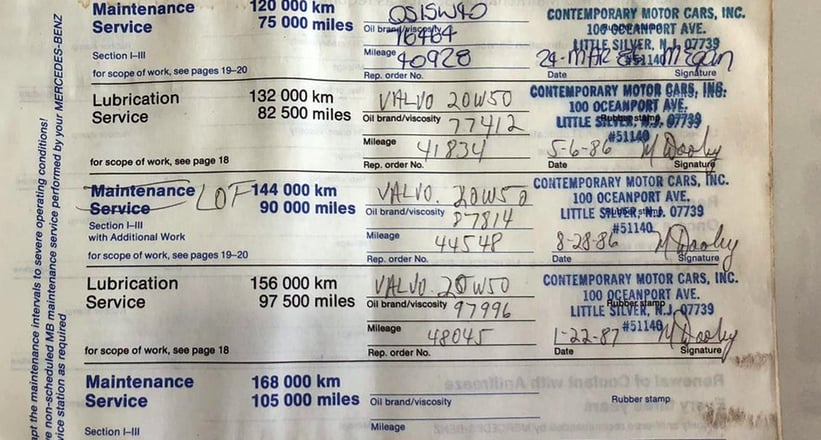 Maintenance 120 000 km QS15W40 CONTEMPORARY MOTOR CARS, INC.
Service 75 000 miles Oil brand/viscosity 100 OCEANPORT AVE.
76464 LITTLE SILVER, N.J. 07739
Section I–III Mileage #51140
40928 24-MAR 86
for scope of work, see pages 19–20 Rep. order No. Date Signature
Lubrication 132 000 km VALVO 20W50 CONTEMPORARY MOTOR CARS, INC.
Service 82 500 miles Oil brand/viscosity 100 OCEANPORT AVE.
77412 Rubber stamp LITTLE SILVER, N.J. 07739
Mileage #51140
41834 5-6-86 M Dooley
for scope of work, see page 18 Rep. order No. Date Signature
Maintenance LOF 144 000 km VALVO. 20W50 CONTEMPORARY MOTOR CARS, INC.
Service 90 000 miles Oil brand/viscosity 100 OCEANPORT AVE.
87814 Rubber stamp LITTLE SILVER, N.J. 07739
Section I–III Mileage #51140
with Additional Work 44548 8-28-86 M Dooley
for scope of work, see pages 19–20 Rep. order No. Date Signature
Lubrication 156 000 km VALVO. 20W50 CONTEMPORARY MOTOR CARS, INC.
Service 97 500 miles Oil brand/viscosity 100 OCEANPORT AVE.
97996 Rubber stamp LITTLE SILVER, N.J. 07739
Mileage #51140
48045 1-22-87 M Dooley
for scope of work, see page 18 Rep. order No. Date Signature
Maintenance 168 000 km
Service 105 000 miles Oil brand/viscosity Rubber stamp
Section I–III Mileage
pt the maintenance intervals to severe operating conditions!
e non-scheduled MB maintenance service performed by your MERCEDES-BENZ
vice station as required